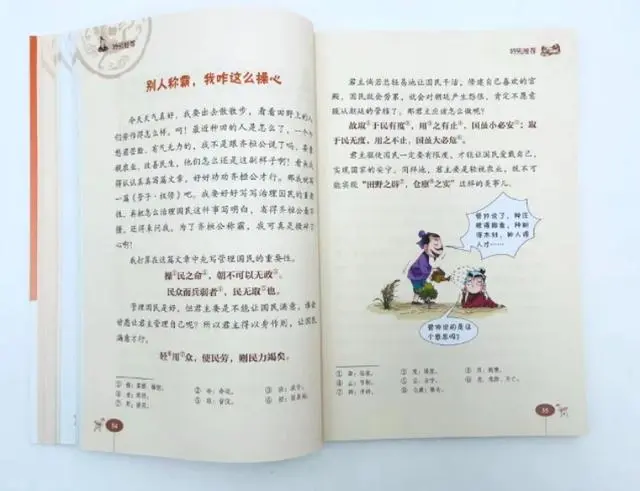 特别推荐
别人称霸，我咋这么操心
今天天气真好，我要出去散散步，看看田野上的人
们劳作得怎么样。呵！最近种田的人是怎么了，一个个
愁眉苦脸、有气无力的，我不是跟齐桓公说了吗，要重
视农业、改善民生，他们怎么还是这副样子啊？看来我
得认认真真写篇文章，好好劝劝齐桓公才行。那我就写一
篇《管子·权修》吧。我要好好写写治理国民的重要
性，再把怎么治理国民这件事写明白，省得齐桓公看不
懂，还得来问我。为了齐桓公称霸，我可真是操碎了
心啊！
我打算在这篇文章中先写管理国民的重要性。
操①民之命②，朝不可以无政③。
民众而兵弱者④，民无取⑤也。
管理国民是好，但君主要是不能让国民满意，谁会
甘愿让君主管理自己呢？所以君主得以身作则，让国民
满意才行。
轻⑥用⑦众，使民劳，则民力竭矣。
54
特别推荐
君主倘若总轻易地让国民干活，修建自己喜欢的宫
殿，国民就会劳累，就会对朝廷产生怨恨，肯定不愿意
服从朝廷的管控了。那君主应该怎么做呢？
故取①于民有度②，用③之有止④，国虽小必安⑤；取
于民无度，用之不止，国虽大必危⑥。
君主驱使国民一定要有限度，才能让国民爱戴自己，
实现国家的安宁。同样地，君主要是轻视农业，就不可
能实现“田野之辟⑦，仓廪⑧之实”这样的美事儿。
管仲说了，种庄
稼得除虫，种树
得木材，种人得
人才……
管仲说的是这
个意思吗？
55